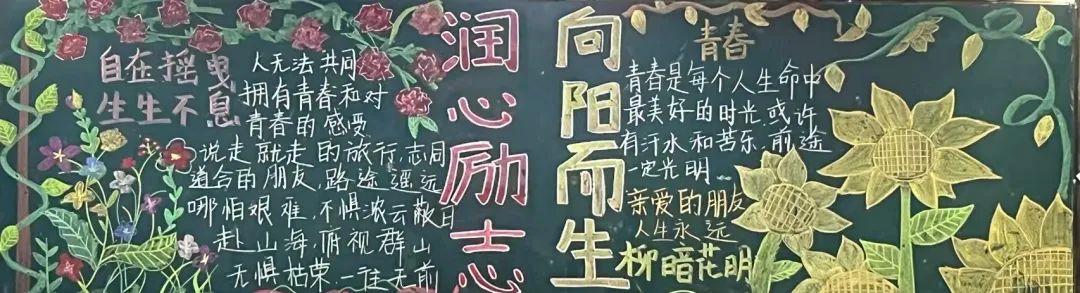 自在摇曳
生生不息
人无法共同
拥有青春和对
青春的感受
说走就走的旅行,志同
道合的朋友,路途遥远
哪怕艰难,不惧浓云蔽日
赴山海,俯视群山
无惧枯荣,一往无前
润心励志
向阳而生
青春
青春是每个人生命中
最美好的时光,或许
有汗水和苦乐,前途
一定光明
亲爱的朋友
人生永远
柳暗花明